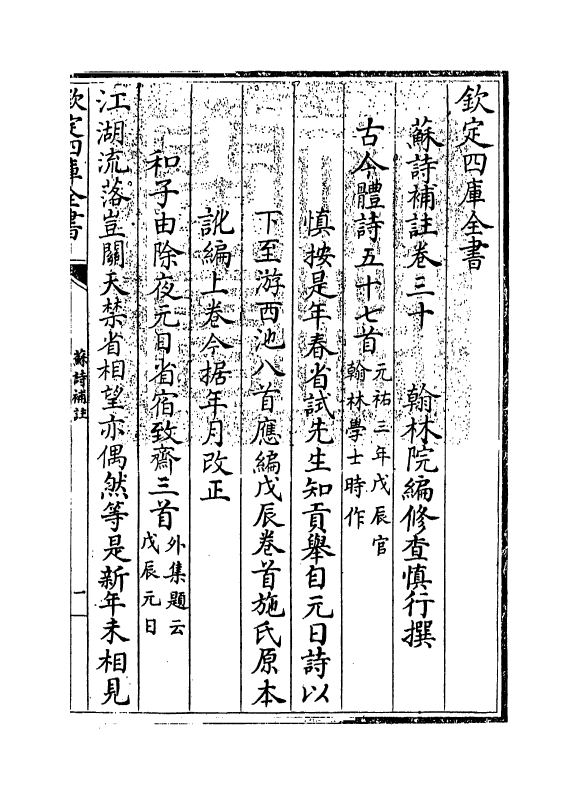 欽定四庫全書
蘇詩補註卷三十　翰林院編修查慎行撰
古今體詩五十七首元祐三年戊辰官翰林學士時作
慎按是年春省試先生知貢舉自元日詩以
下至游西池八首應編戊辰卷首施氏原本
訛編上卷今据年月改正
和子由除夜元日省宿致齋三首外集題云戊辰元日
江湖流落豈關天禁省相望亦偶然等是新年未相見
欽定四庫全書
蘇詩補註
一